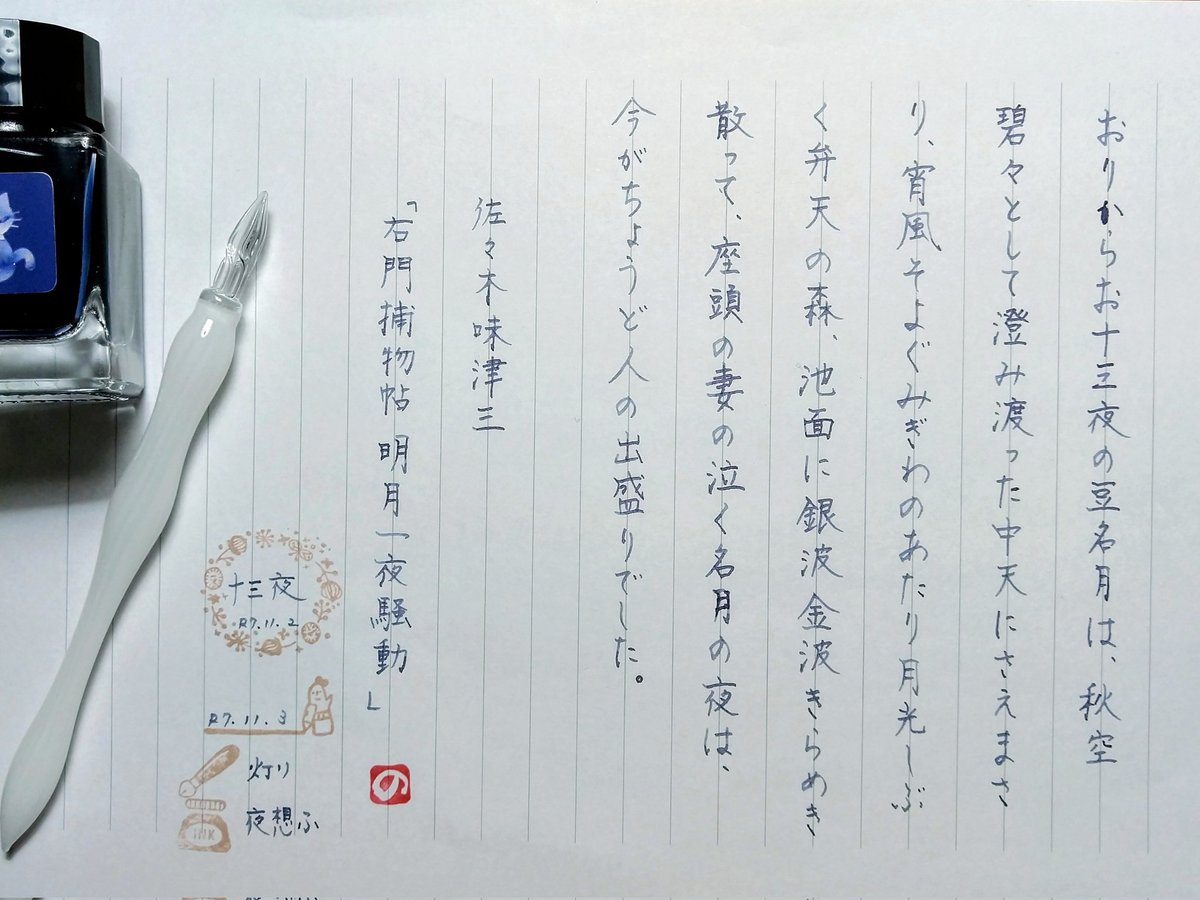 おりからお十三夜の豆名月は、秋空
碧々として澄み渡った中天にさえまさ
り、宵風そよぐみぎわのあたり月光しぶ
く弁天の森、池面に銀波金波きらめき
散って、座頭の妻の泣く名月の夜は、
今がちょうど人の出盛りでした。
佐々木味津三
「右門捕物帖 明月一夜騒動」
の
十三夜
R7.11.2
R7.11.3
灯り
夜想ふ
INK